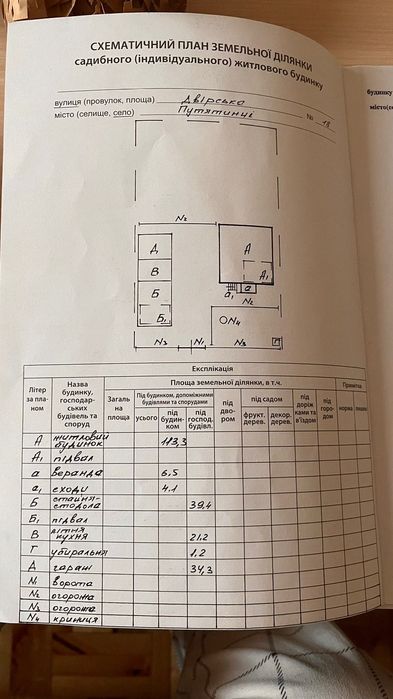 СХЕМАТИЧНИЙ ПЛАН ЗЕМЕЛЬНОЇ ДІЛЯНКИ
садибного (індивідуального) житлового будинку
вулиця (провулок, площа) Двірська
місто (селище, село) Путятинці № 18
будинку
N2
Д
В
Б
Б1
А
А1
а
а1
N2
N4
N3
N1
N3
Г
Експлікація
Літер за планом
Назва будинку, господарських будівель та споруд
Загальна площа
Площа земельної ділянки, в т.ч.
Примітка
Під будинком, допоміжними будівлями та спорудами
усього
під будинком
під господ. будівл.
під двором
під садом
фрукт. дерев.
декор. дерев.
під доріжками та в'їздом
під городом
норма
А житловий будинок 113,3
А1 підвал
а веранда 6,5
а1 сходи 4.1
Б стайня-стодола 39,4
Б1 підвал
В літня кухня 21,2
Г убиральня 1,2
Д гараж 34,3
N1 ворота
N2 огорожа
N3 огорожа
N4 криниця